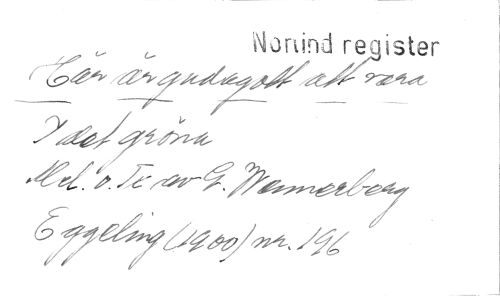 Norlind register
Här är gudagott att vara
I det gröna
Mel. o. Te av G. Wennerberg
Eggeling (1900) nr. 196